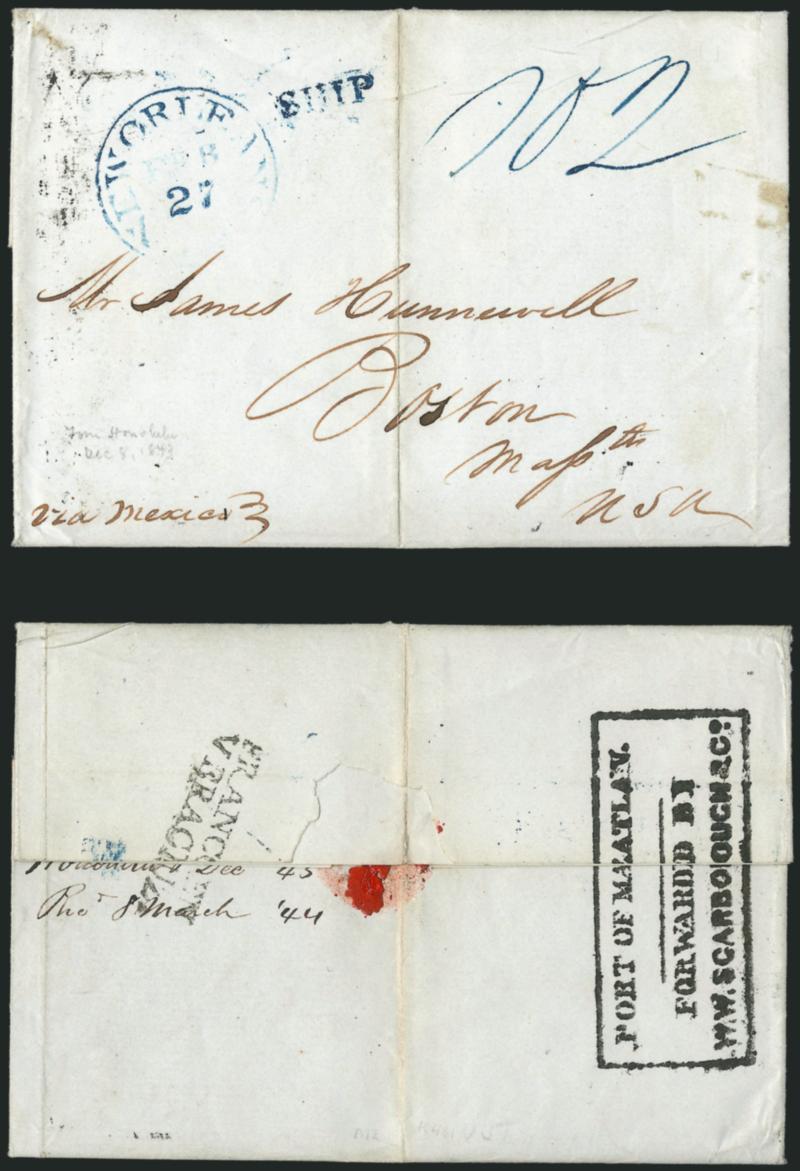 NEW ORLEANS
FEB
27
SHIP
102
Mr James Hunnewell
Boston
Massth
USA
From Honolulu
Dec 8, 1843
via Mexico
FRANCO EN
VERACRUZ
Dec 43
Recd 8 March '44
PORT OF MAZATLAN.
FORWARDED BY
W.W. SCARBOROUGH & Co.